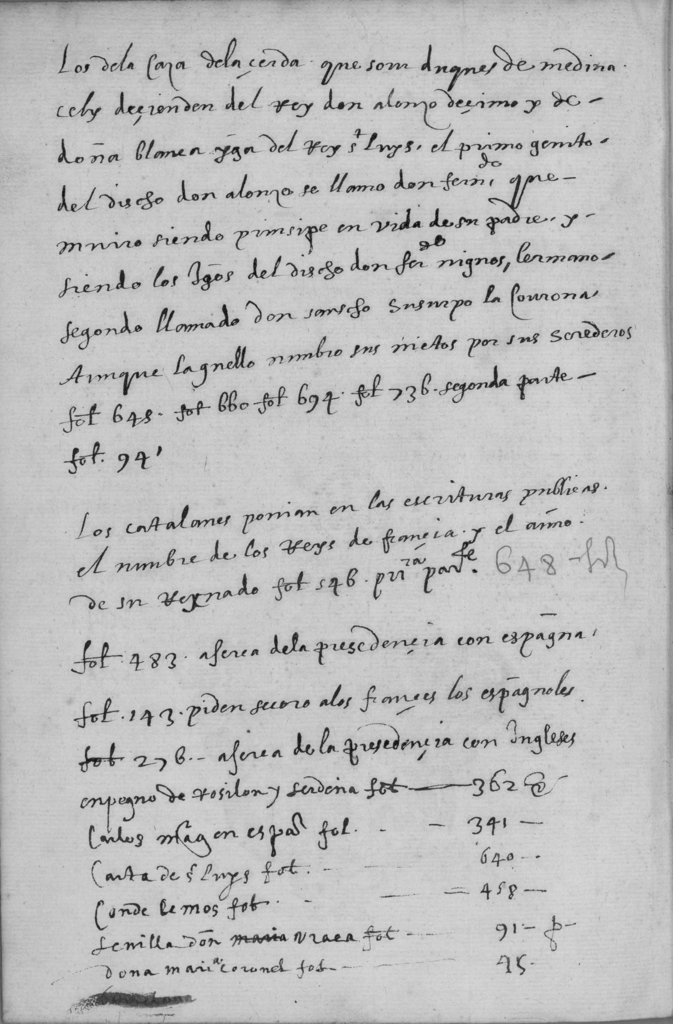 Los dela Caza dela çerda que som duques de medina
cely deçienden del Rey don alonzo deçimo y de
doña blanca yga del Rey st Luys. el primo genito
del discho don alonzo se llamo don fernido que
muriro siendo prinsipe en vida de su padre. y
siendo los Igos del discho don ferdo nignos, lermano
segondo llamado don sanscho susurpo la Courona
Aunque laguello numbro sus nietos por sus Serederos
fol. 645. fol 660 fol 694. fol 736. segonda parte
fol. 94
Los catalanes ponian en las escrituras publicas.
el numbre de los Reys de françia. y el anno.
de su Reynado fol 546. prira parte. 648 - fol
fol. 483. aserca dela presedençia con espagna.
fol. 143. piden secoro alos frances los espagnoles
fol 276. aserca de la presedençia con Ingleses
enpegno de Rosilon y serdena fol 362
Carlos mag en espa fol. 341
Carta de st Luys fol. 640
Conde lemos fol. 458
Sevilla don maria Vraca fol 91 - p
dona maria coronel fol. 45